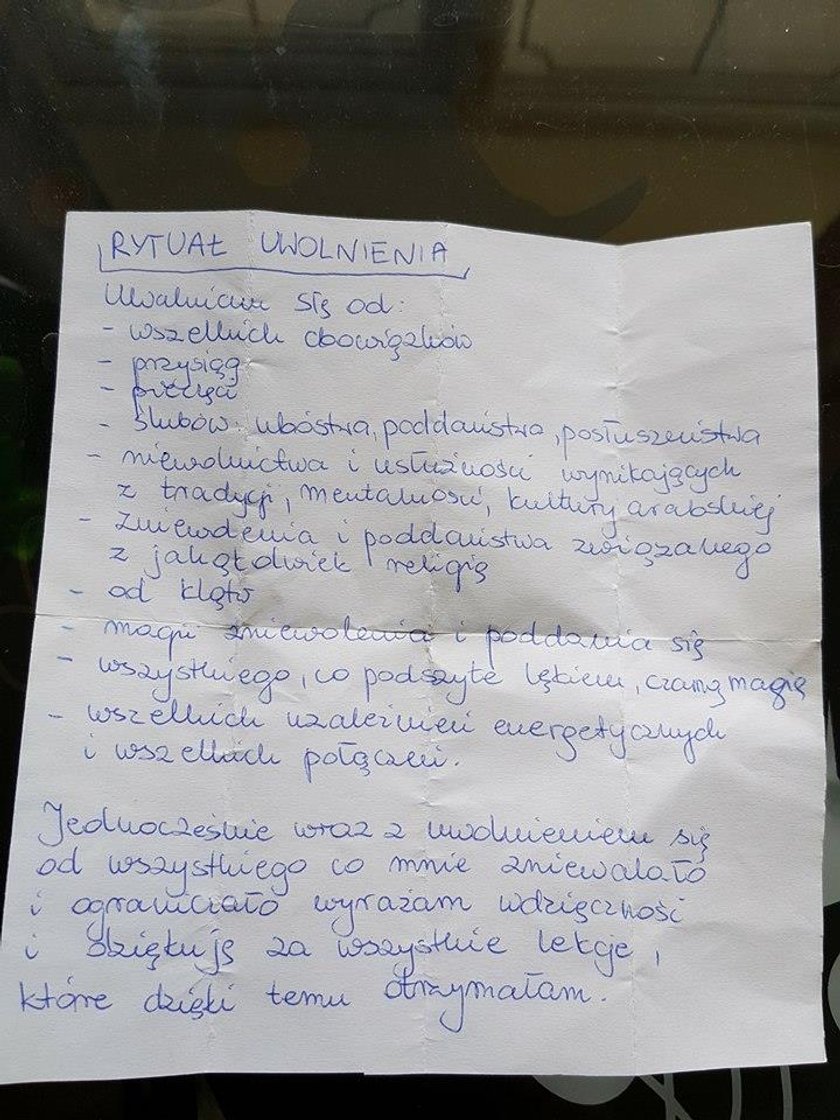 RYTUAŁ UWOLNIENIA
Uwalniam się od:
- wszelkich obowiązków
- przysiąg
- pieczęci
- ślubów: ubóstwa, poddaństwa, posłuszeństwa
- niewolnictwa i usłużności wynikających
z tradycji, mentalności, kultury arabskiej
- zniewolenia i poddaństwa związanego
z jakąkolwiek religią
- od klątw
- magii zniewolenia i poddania się
- wszystkiego, co podszyte lękiem, czarną magią
- wszelkich uzależnień energetycznych
i wszelkich połączeń.
Jednocześnie wraz z uwolnieniem się
od wszystkiego co mnie zniewalało
i ograniczało wyrażam wdzięczność
i dziękuję za wszystkie lekcje,
które dzięki temu otrzymałam.